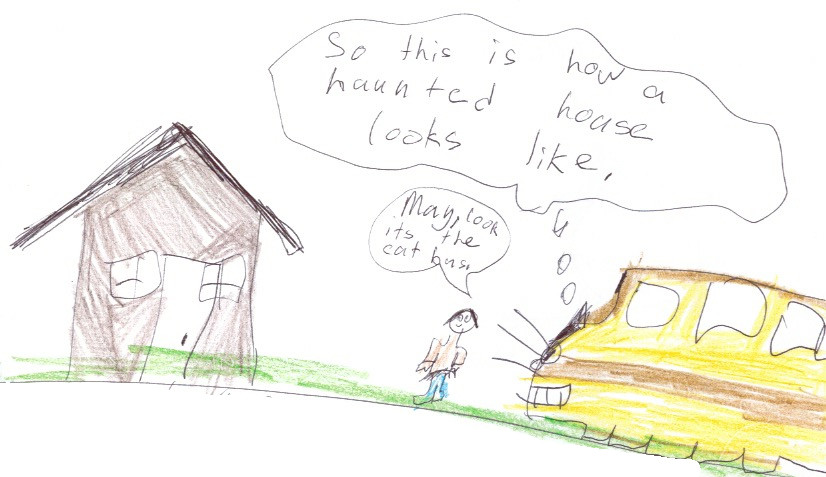 So this is how a
haunted house
looks like.
May, look
its the
cat bus.